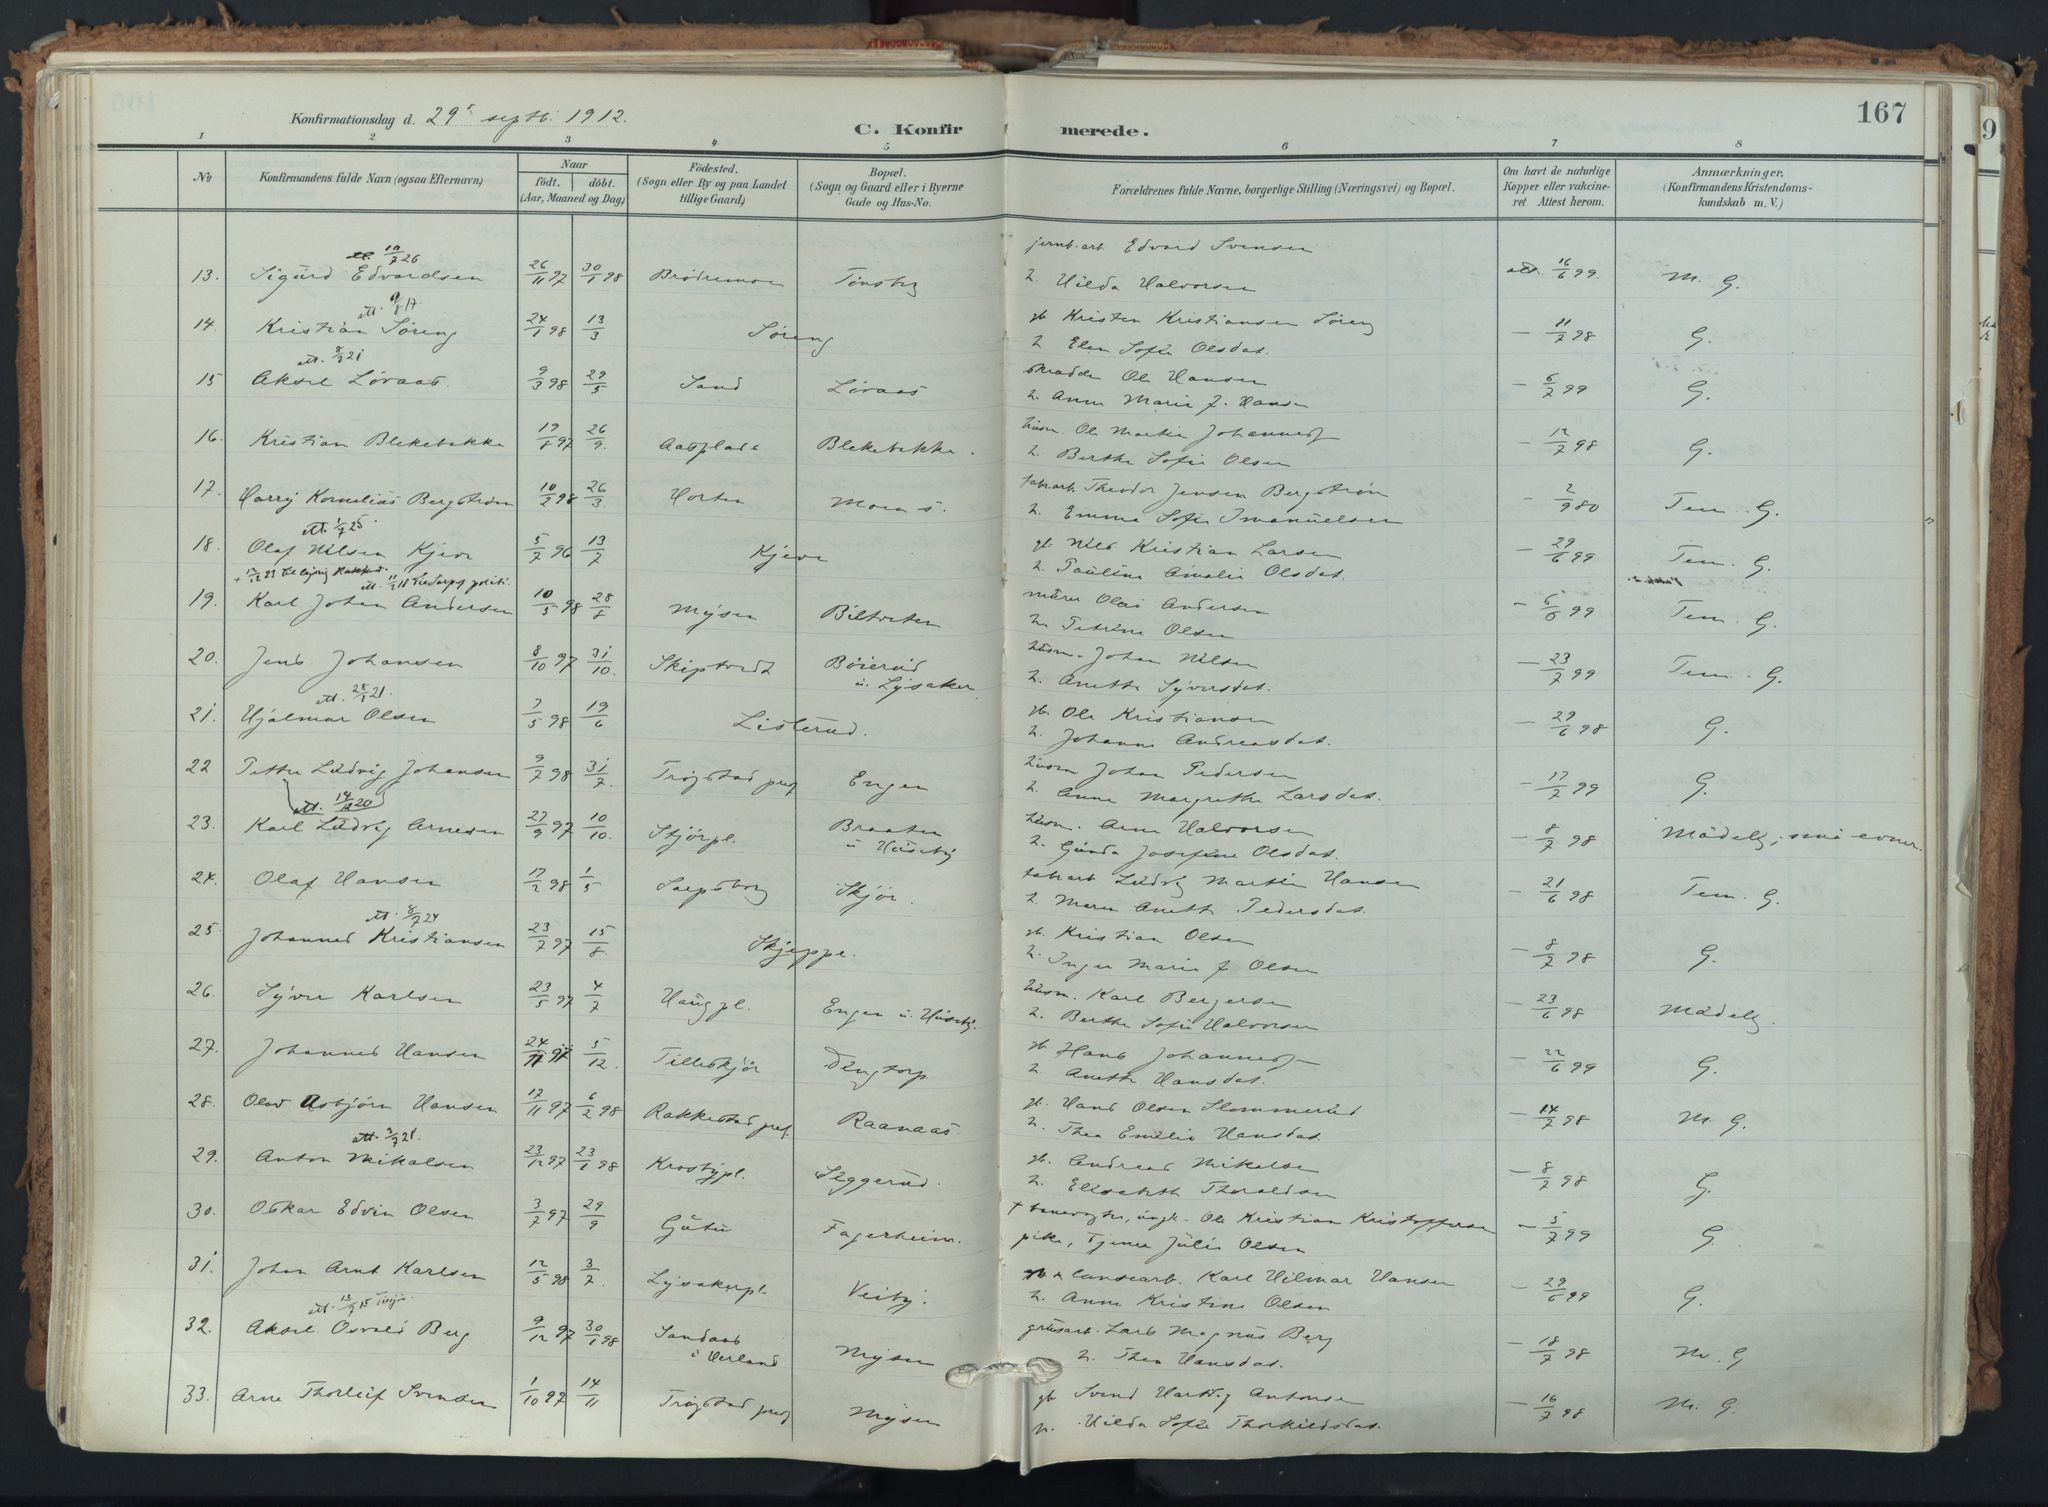 167
Konfirmationsdag d. 29 septb. 1912.
C. Konfirmerede.
1 2 3 4 5 6 7 8
No
Konfirmandens fulde Navn (ogsaa Efternavn)
Naar
födt. döbt.
(Aar, Maaned og Dag)
Födested.
(Sogn eller By og paa Landet
tillige Gaard)
Bopæl.
(Sogn og Gaard eller i Byerne
Gade og Hus-No.
Forældrenes fulde Navne, borgerlige Stilling (Næringsvei) og Bopæl.
Om havt de naturlige
Kopper eller vakcine-
ret Attest herom.
Anmærkninger.
(Konfirmandens Kristendoms-
kundskab m. V.)
10/7 26 jernb.arb. Edvard Svensen
13. Sigurd Edvardsen 26/11 97 30/1 98 Tønsby h. Hilda Halvorsen att. 16/6 99. M. G.
att. 9/8 17 gb. Kristen Kristiansen Søreng
14. Kristian Søreng 24/1 98 13/3 Søreng h. Elen Sofie Olsdat. - 11/7 98 G.
att. 8/3 21 skrædder Ole Hansen
15 Aksel Løraas. 9/3 98 29/5 Sand Løraas h. Anne Marie J. Hansen - 6/7 99 G.
husm. Ole Martin Johannesf
16. Kristian Blekebakke 19/8 97 26/9. Blekebakke. h. Berthe Sofie Olsen - 12/7 98 G.
fabrarb. Theodor Jensen Bergström
17. Harry Kornelius Bergström 10/2 98 26/3. Horten h. Emma Sofie Imanuelsen - 2/9 80 Tem. G.
att. 1/7 25 gb. Nils Kristian Larsen
18. Olaf Nilsen Kjeve 5/7 96 13/7 Kjeve h. Pauline Amalie Olsdat. - 29/6 99 Tem. G.
att. 11/2 18 til Sarpsf politi.
murer Olai Andersen
19. Karl Johan Andersen 10/5 98 28/8 Mysen h. Petrine Olsen - 99 Tem. G.
husm. Johan Nilsen
20. Jens Johansen 8/10 97 31/10. Skiptvedt Böierud
u. Lysaker h. Anette Syversdat. - 23/7 99 Tem. G.
gb. Ole Kristiansen
21. Hjalmar Olsen 7/5 98 19/6 Listerud. h. Johanne Andreasdat. - 29/6 98 G.
husm Johan Pedersen
22 Petter Ludvig Johansen 9/7 98 31/7. Trøgstad pref Engen h. Anne Margrethe Larsdat. - 17/7 99 G.
att. 20
husm. Arne Halvorsen
23. Karl Ludvig Arnesen 27/9 97 10/10. Skjørpl. Braaten
u Huseby h. Gunda Josefine Olsdat. - 8/7 98 Mådelg; små evner.
fabrarb Ludvig Martin Hansen
24. Olaf Hansen 17/2 98 1/5 Sarpsborg Skjør. h. Maren Anette Pedersdat. - 21/6 98 Tem. G.
att. 8/7 24 gb. Kristian Olsen
25. Johannes Kristiansen 23/7 97 15/8 Skjeppe. h. Inger Marie J Olsen - 8/7 98 G.
husm. Karl Bergersen
26. Syver Karlsen 23/5 97 4/7 Haugpl. Engen u. Huseby. h. Berthe Sofie Halvorsen - 23/6 98 Mådelg.
gb. Hans Johannesf
27. Johannes Hansen 24/11 97 5/12. Tilleskjør Dingtorp h. Anette Hansdat. - 22/6 99 G.
gb. Hans Olsen Slommerud
28. Olav Asbjörn Hansen 17/11 97 6/2 98 Rakkestad pref. Raanaas. h. Thea Emilie Hansdat. - 14/7 98 M. G.
att. 3/7 21. gb. Andreas Mikalsen
29. Anton Mikalsen 23/12 97 23/1 98 Krosbypl. Seggerud. h. Elisabeth Thoraldsen - 8/7 98 G.
+ banevogter, ungk. Ole Kristian Kristoffersen
30. Oskar Edvin Olsen 3/7 97 29/9 Fagerheim. pike, Tjener Julie Olsen - 5/7 99 G.
Karl Hilmar Hansen
31. Johan Arnt Karlsen 12/5 98 3/7. Lysakerpl. Veiby. h. Anne Kristine Olsen - 29/6 99 G.
att. 13/7 15
grusarb. Lars Magnus Berg
32. Aksel Osvald Berg 9/12 97 30/1 98 Sandaas
Mysen h. Thea Hansdat. - 18/7 98 M. G
gb Svend Hartvig Antonsen
33. Arne Thorleif Svensen 1/10 97 14/11 Trøgstad pref Mysen h. Hilda Sofie Thorkildsdat. - 16/7 98 M. G.